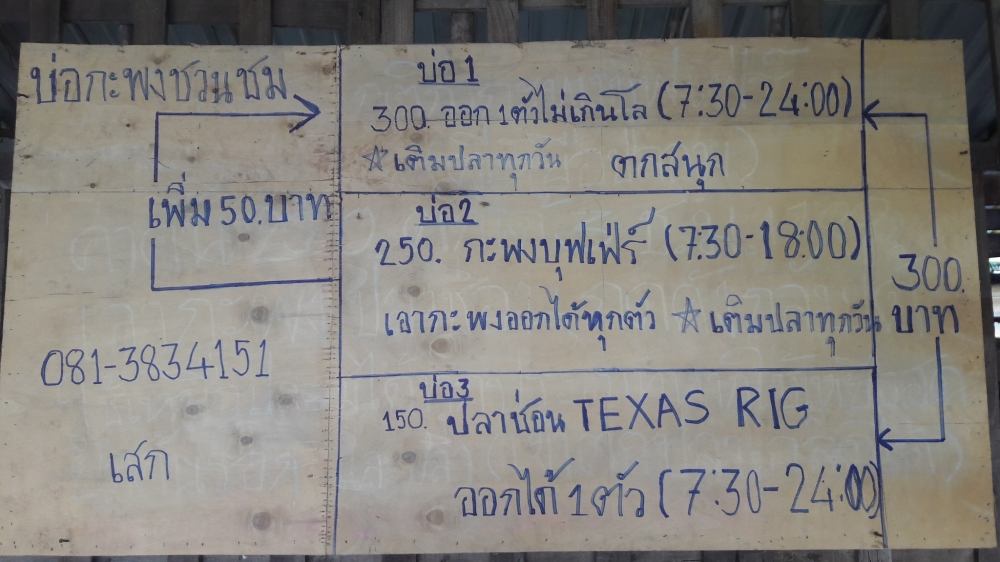 บ่อกะพงชวนชม
เพิ่ม 50.บาท
081-3834151
เสก
บ่อ 1
300. ออก 1ตัวไม่เกินโล (7:30-24:00)
☆เติมปลาทุกวัน ตกสนุก
บ่อ2
250. กะพงบุฟเฟ่ร์ (7:30-18:00)
เอากะพงออกได้ทุกตัว ☆เติมปลาทุกวัน
บ่อ3
150. ปลาช่อน TEXAS RIG
ออกได้ 1ตัว (7:30-24:00)
300.
บาท